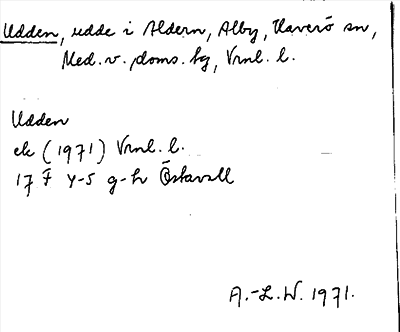 Udden, udde i Aldern, Alby, Haverö sn,
Med. v. doms. hg, Vrnl. l.
Udden
ek (1971) Vrnl. l.
17 F Y-5 g-h Östavall
A.-L.W. 1971.